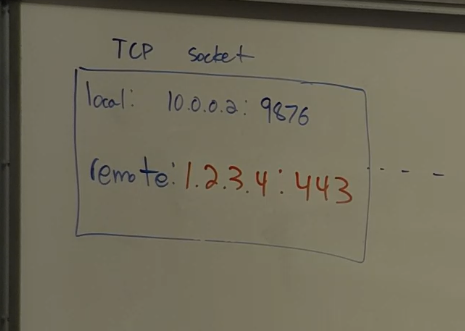 TCP socket
local: 10.0.0.2: 9876
remote: 1.2.3.4: 443